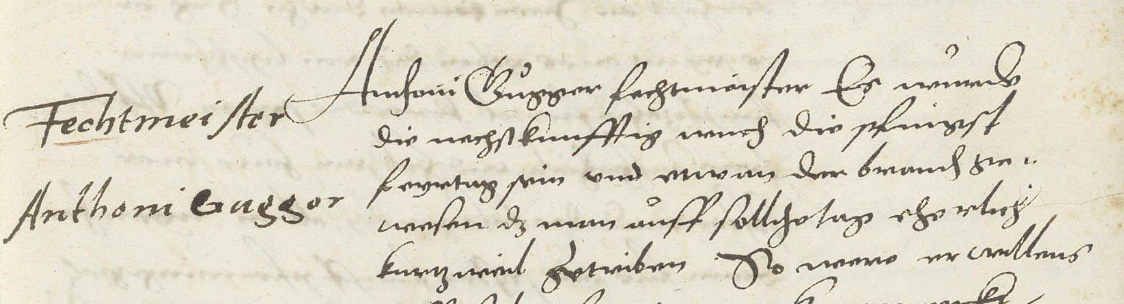 Fechtmeister
Anthoni Gugger
Anthoni Gugger fechtmaister Es wurde
die nechst kunfftig wuch die pfingst
feyrtag sein und etwan der brauch ge„
wesen dz man auff sollche tag eherlich
kurtzweil getriben So were er willens